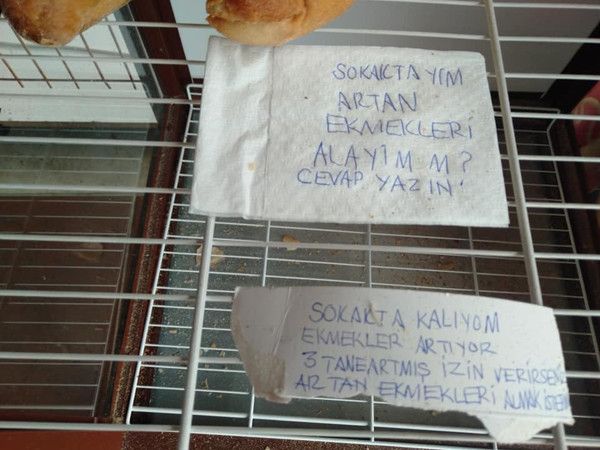 SOKAKTAYIM
ARTAN
EKMEKLERİ
ALAYIM M?
CEVAP YAZIN.
SOKAKTA KALIYOM
EKMEKLER ARTIYOR
3 TANEARTMIŞ İZİN VERİRSENİ
ARTAN EKMEKLERİ ALMAK